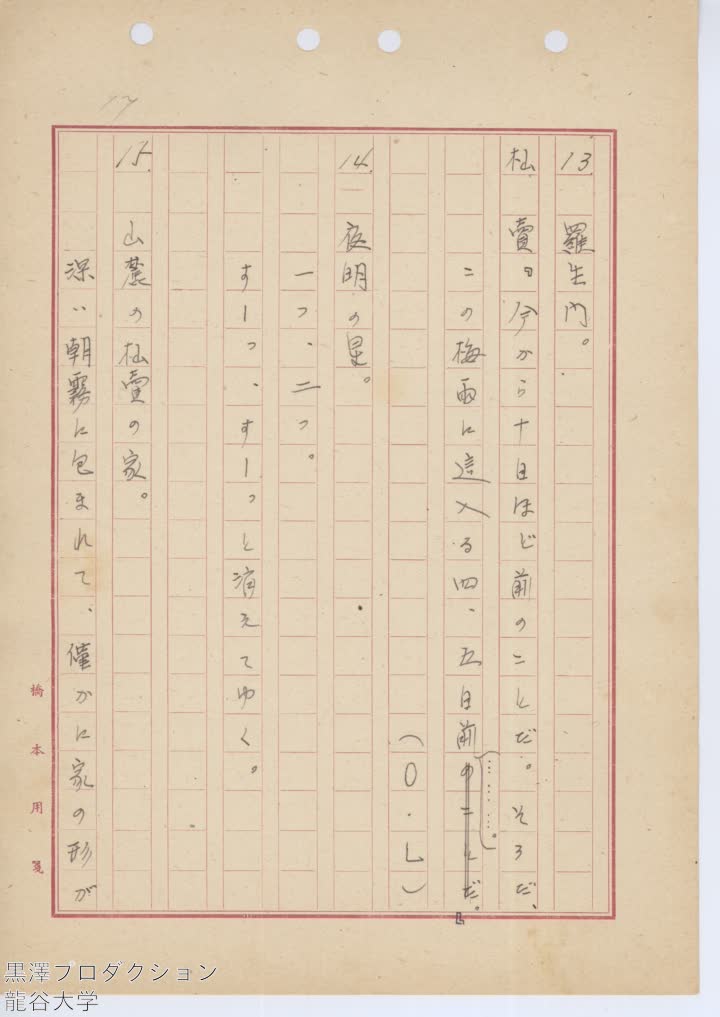 17
13 羅生門。
杣賣「今から十日ほど前のことだ。そうだ、
この梅雨に這入る四、五日前のことだ。」
………。
(O・L)
14 夜明の星。
一つ、二つ。
すーっ、すーっと消えてゆく。
15 山麓の杣賣の家。
深い朝霧に包まれて、僅かに家の形が
橋本用箋
黒澤プロダクション
龍谷大学